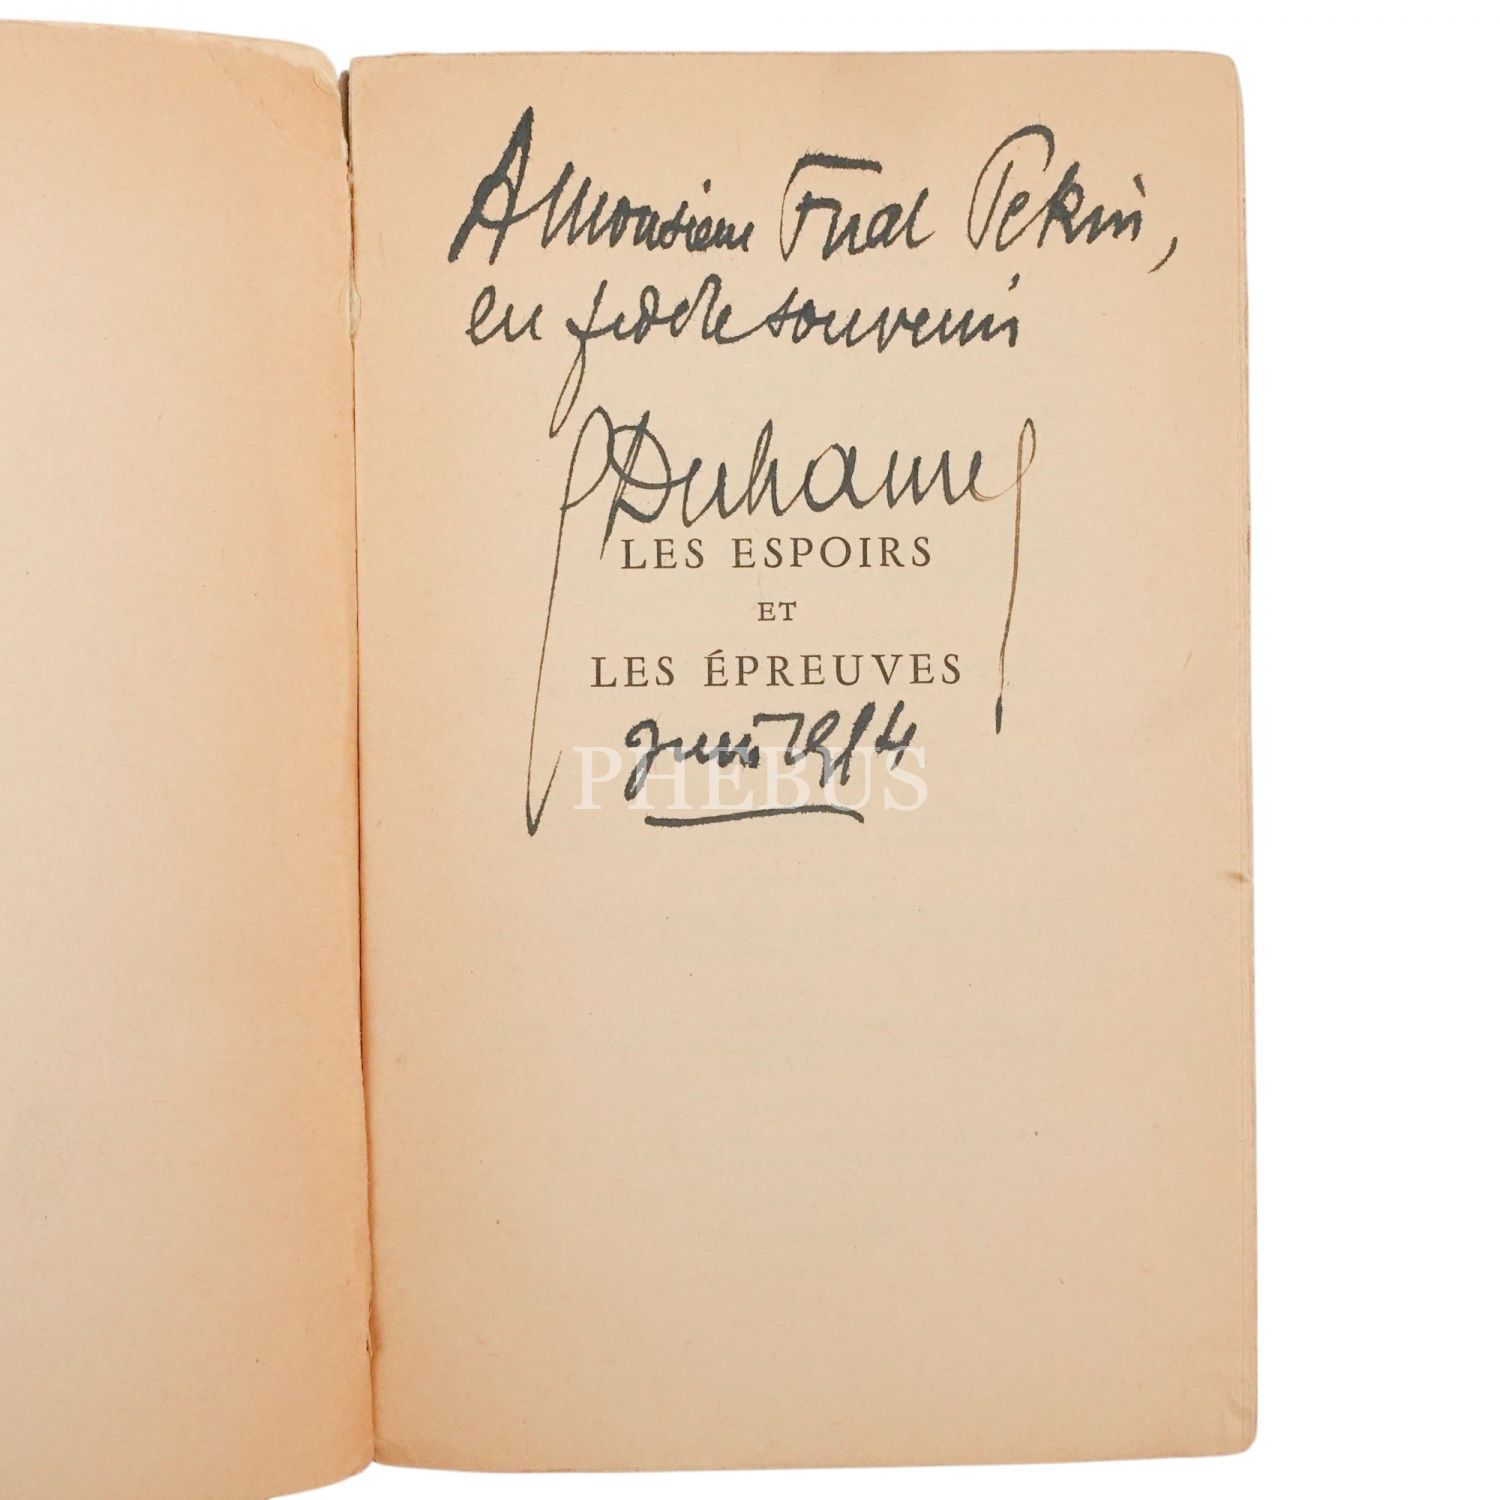 A Monsieur Fuad Pekin,
en fidèle souvenir
GDuhamel
LES ESPOIRS
ET
LES ÉPREUVES
juin 1954
PHEBUS